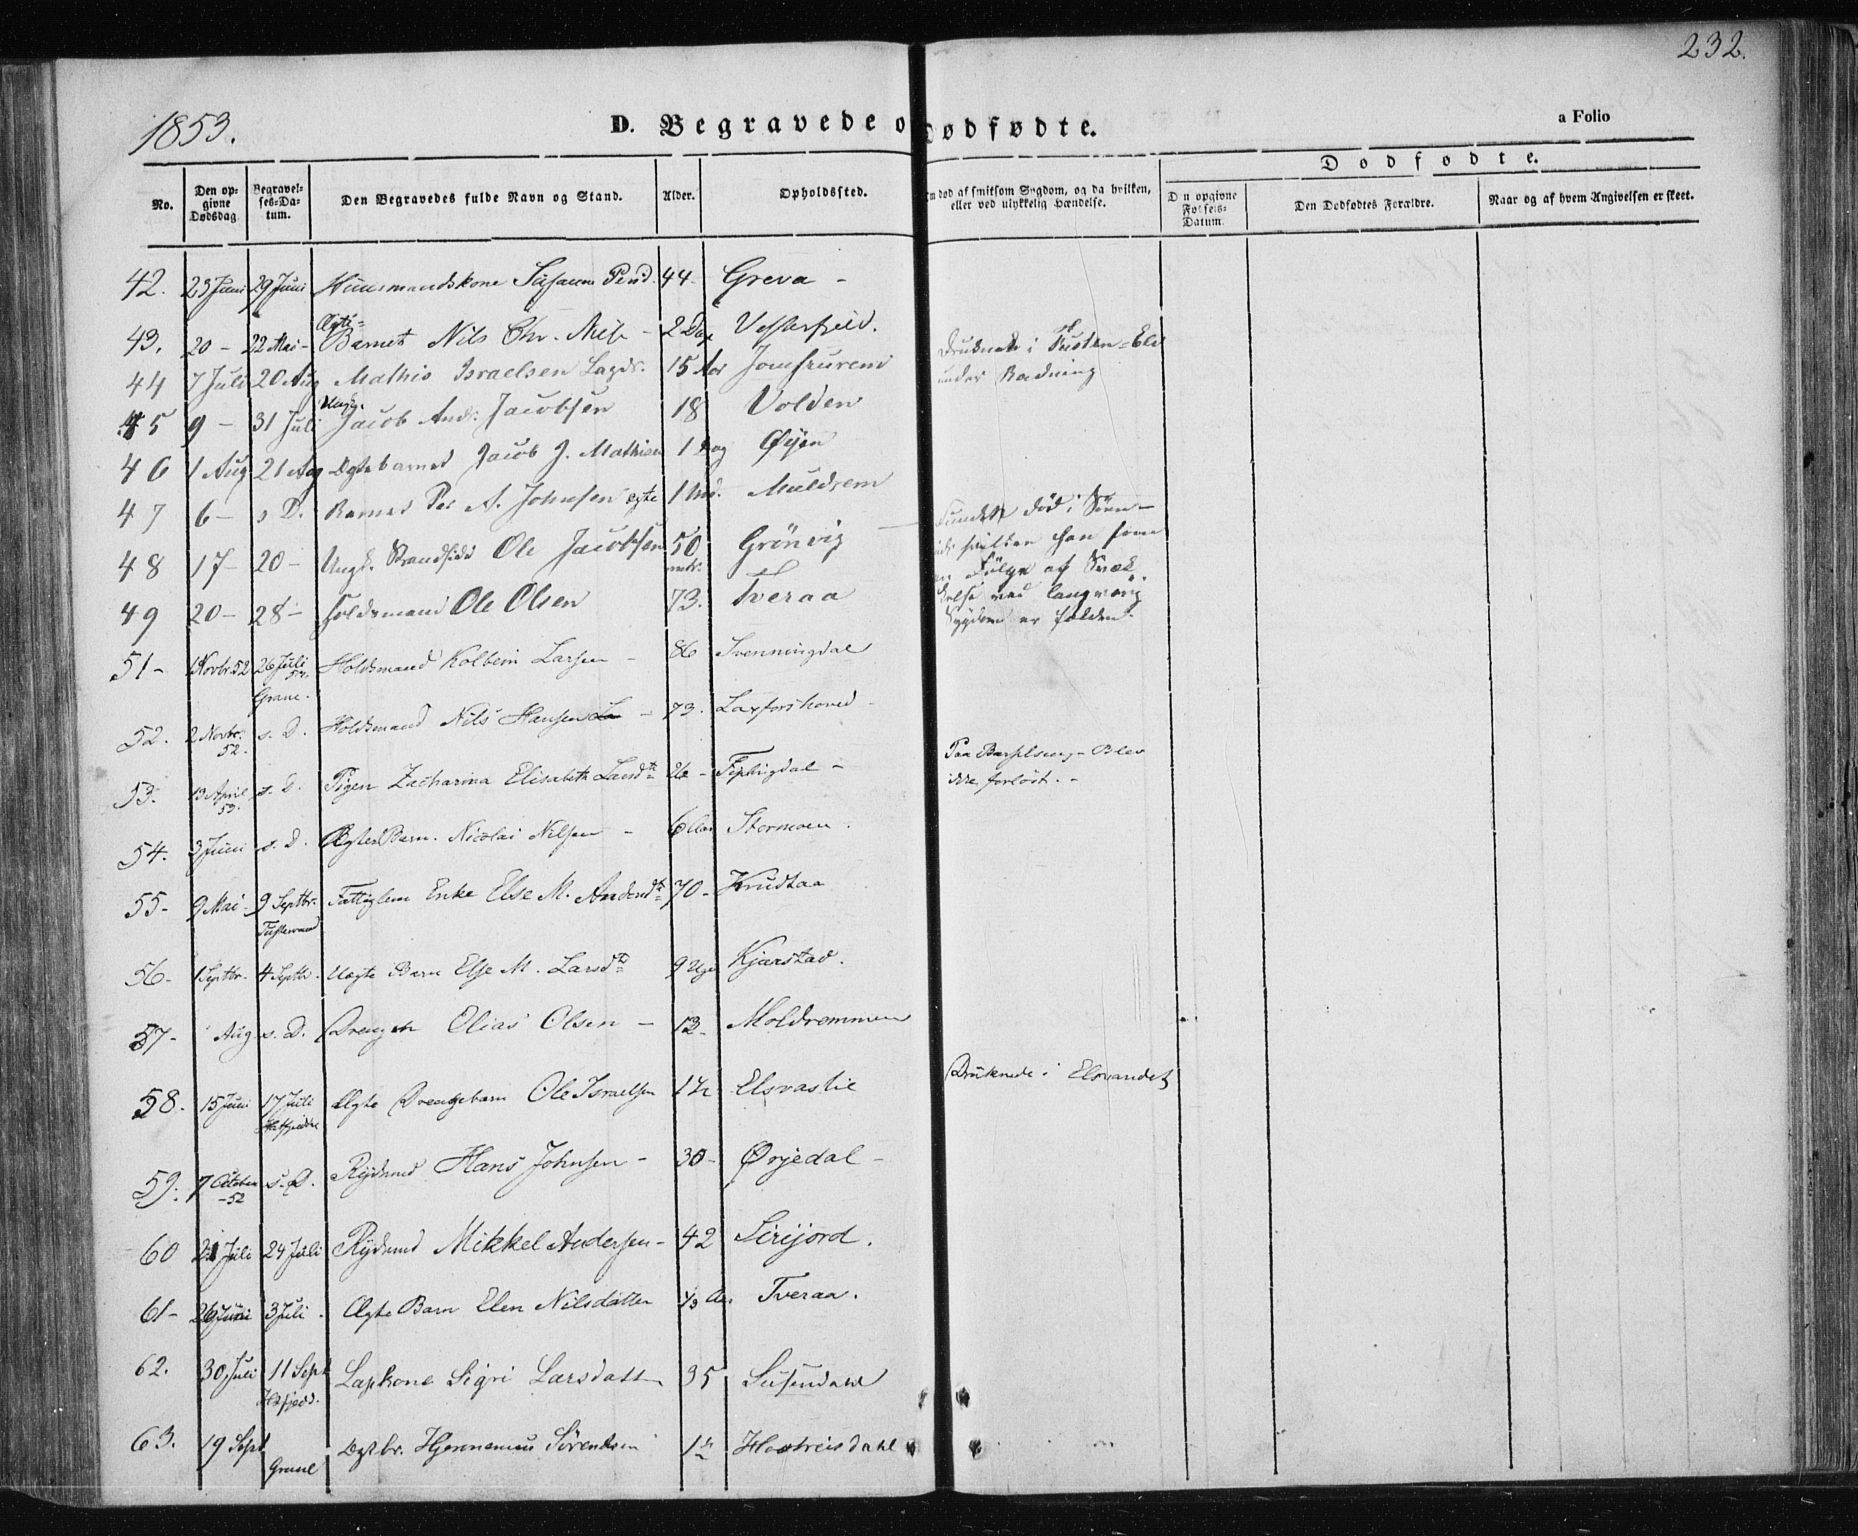 232.
1853.
D. Begravede o
Dødfødte.
a Folio
No.
Den opgivne Dødsdag
Begravelses-Datum.
Den Begravedes fulde Navn og Stand.
Alder.
Opholdssted.
om død af smitsom Sygdom, og da hvilken, eller ved ulykkelig Hændelse.
Dødfødte.
Den opgivne Fødsels-Datum.
Den Dødfødtes Forældre.
Naar og af hvem Angivelsen er skeet.
42. 23 Juni 29 Juni Huusmandskone Susanna 44 Greva -
43. 20 - 22 Mai - Ægte- Barnet Nils Chr. 2 Dag
44 7 Juli 20 Aug Mathis Israelsen 15 Aar Jomfrurem
Druknede i - Elv
under Badning
45 9 - 31 Juli Ungk. Jacob And: Jacobsen 18 Volden
46 1 Aug 21 Aug Ægtebarnet Jacob J. Mathisen 1 Dag Øyen
47 6 - s. D. Barnet Per A. Johnsen ægte 1 Md. Muldrem
48 17 - 20 - Ungk. Strandsidd Ole Jacobsen 50 Grönvig
Funden död i
hvilken han som
en Følge af Svæk
kelse ved langvarig
Sygdom er falden.
49 20 - 28 - Ole Olsen 73. Tveraa
51 - 1 Novbr. 52 26 Juli 53. Grane. Holdsmand Kolbein Larsen - 86 Svenningdal
52. 2 Novbr. 52. s. D. Holdsmand Nils Hansen - 73. Laxforshoved -
53. 13 April 53. s. D. Pigen Zacharina Elisabeth Larsdtr 26 - Fiplingdal -
Paa Barselseng - Blev
ikke forløst. -
54. 3 Juni s. D. Ægte Barn. Nicolai Nilsen - 6 Aar Stormoen.
55 - 9 Mai - 9 Septbr. Tustervand Fattiglem Enke Else M. Andersdtr 70 - Krudtaa
56 - 1 Septbr. 4 Septbr. Uægte Barn Else M. Larsdtr 9 Uger Kjærstad.
57 - Aug s. D. Drengen Elias Olsen - 13 - Moldremmen
58. 15 Juni 17 Juli Hatfjeldd. Ægte Drengebarn Ole Israelsen Elsvastie
Druknede i Elsvandet
59. 7 October - 52 s. D. Rydsmd Hans Johnsen - 30 - Ørjedal -
60 21 Juli 24 Juli Rydsmd Mikkel Andersen - 42 Sirijord.
61 - 26 Juni 3 Juli. Ægte Barn Elen Nilsdatter Aar Tveraa.
62. 30 Juli 11 Sept Hatfjeldd. Lapkone Sigri Larsdatter 35 Susendahl
63. 19 Sept Grane Ægtbr. Hjeronemus Sörensen